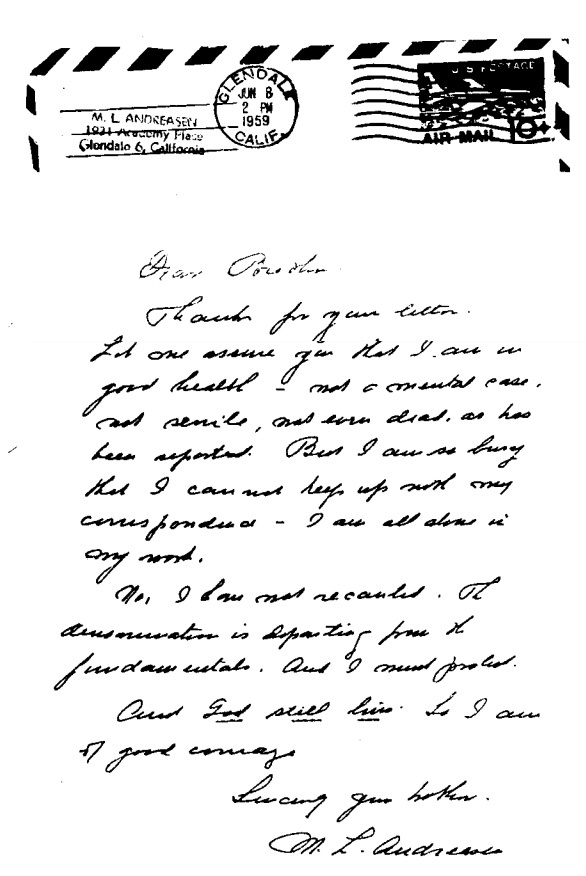 GLENDALE
CALIF.
JUN 8
2 PM
1959
U.S. POSTAGE
AIR MAIL 10¢
M. L. ANDREASEN
1921 Academy Place
Glendale 6, California
Dear
Thanks for your letter.
Let me assure you that I am in
good health – not a mental case,
not senile, not even dead, as has
been reported. But I am so busy
that I cannot keep up with my
correspondence – I am all alone in
my work.
No, I have not recanted. The
denomination is departing from the
fundamentals. And I must protest.
And God still lives. So I am
of good courage
Sincerely your brother.
M. L. Andreasen